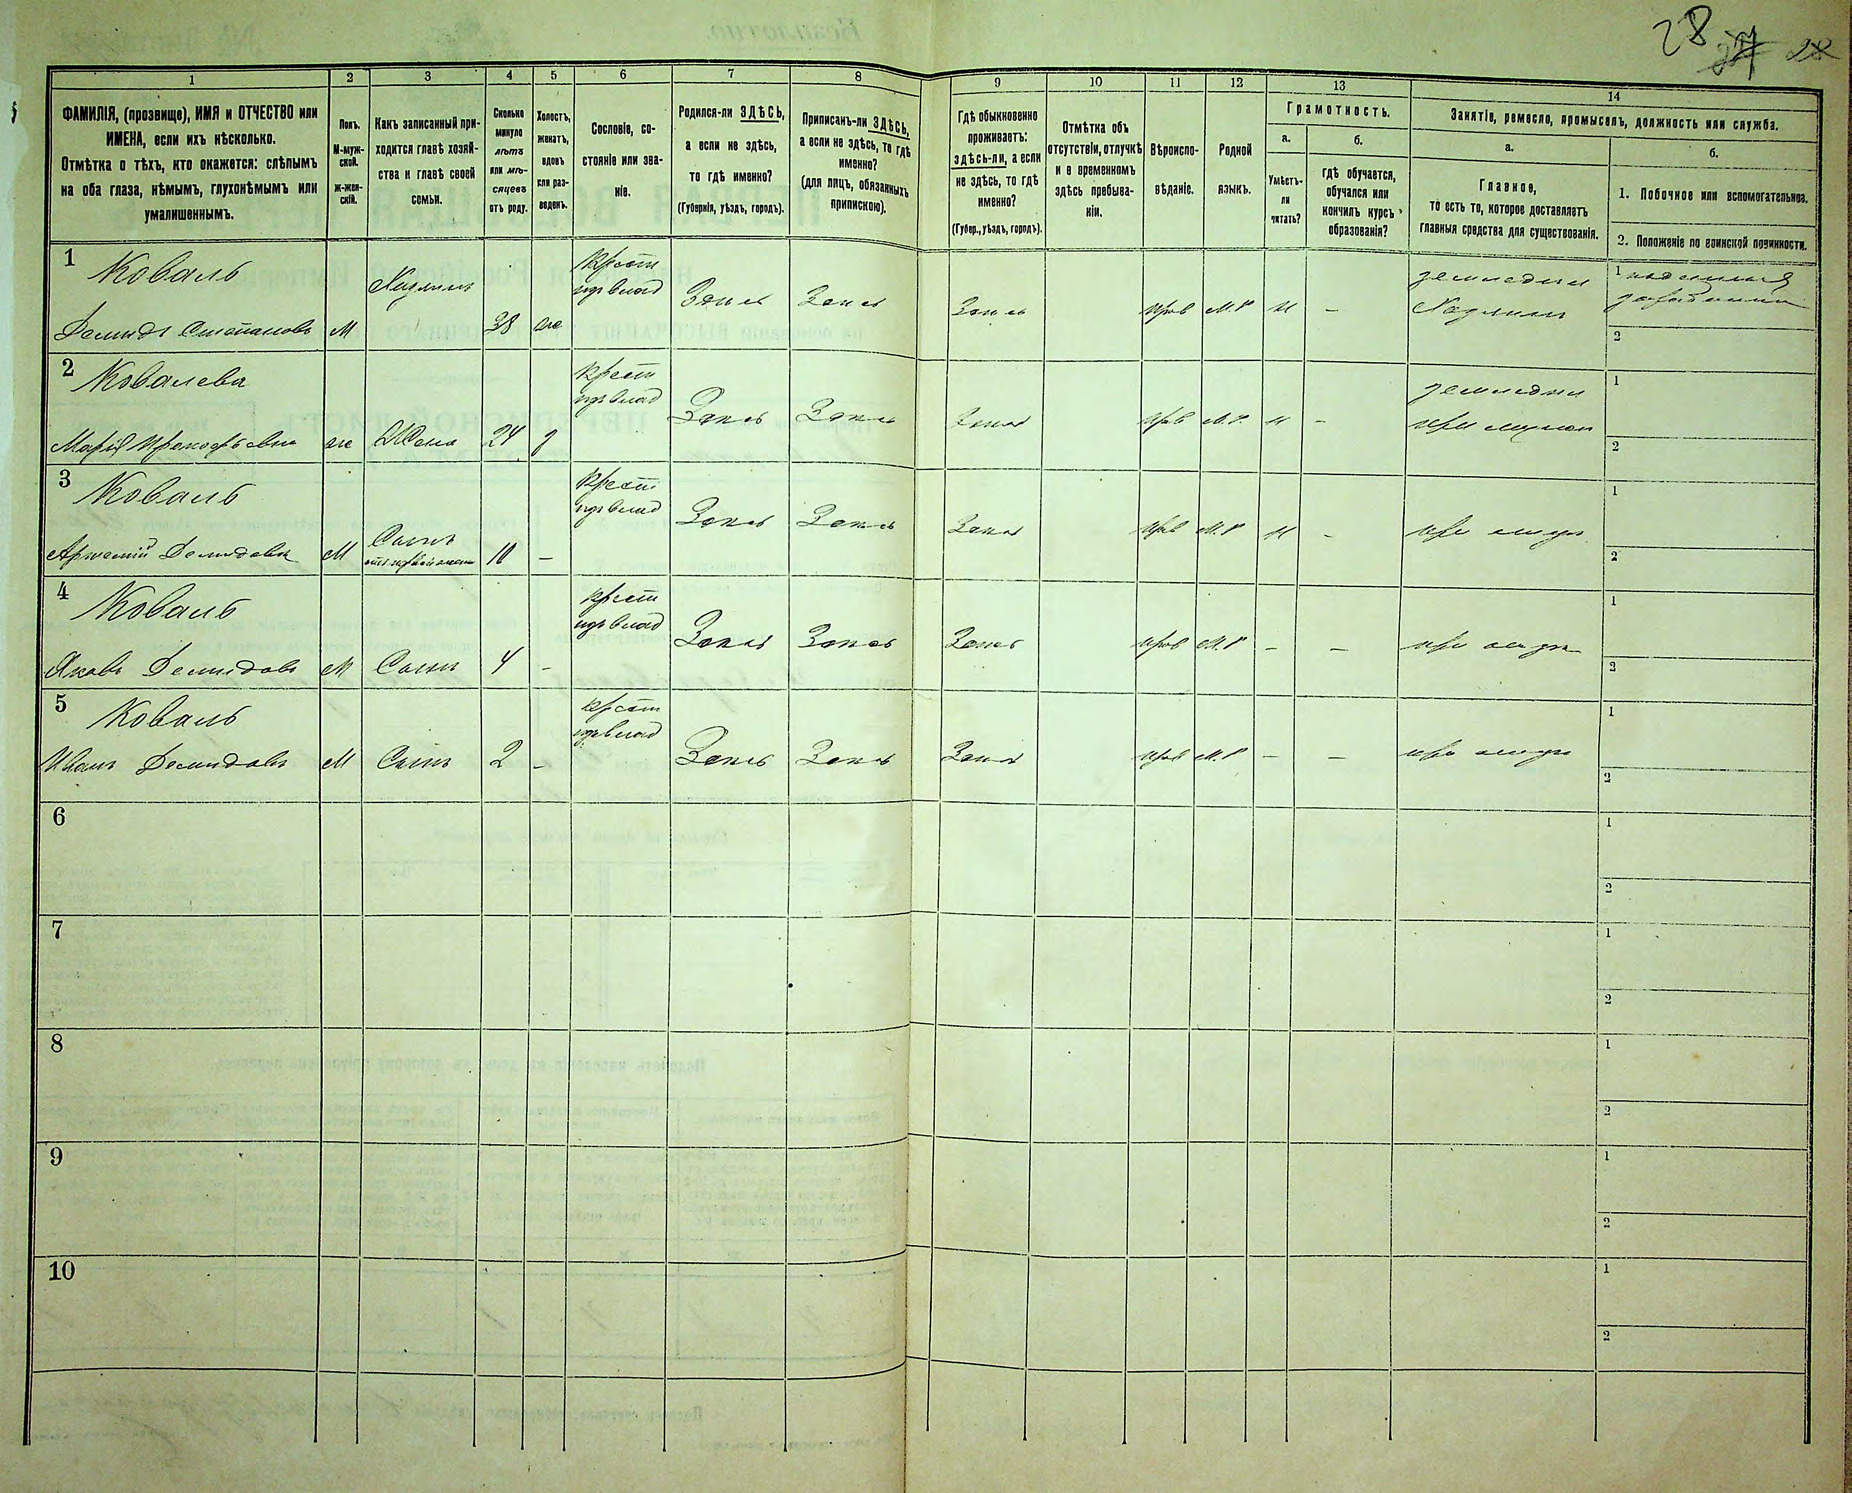 28 27 28
1 2 3 4 5 6 7 8 9 10 11 12 13 14
ФАМИЛІЯ, (прозвище), ИМЯ и ОТЧЕСТВО или
ИМЕНА, если ихъ нѣсколько.
Отмѣтка о тѣхъ, кто окажется: слѣпымъ
на оба глаза, нѣмымъ, глухонѣмымъ или
умалишеннымъ.
Полъ.
М-муж-
ской.
ж-жен-
скій.
Какъ записанный при-
ходится главѣ хозяй-
ства и главѣ своей
семьи.
Сколько
минуло
лѣтъ
или мѣ-
сяцевъ
отъ роду.
Холостъ,
женатъ,
вдовъ
или раз-
веденъ.
Сословіе, со-
стояніе или зва-
ніе.
Родился-ли ЗДѢСЬ,
а если не здѣсь,
то гдѣ именно?
(Губернія, уѣздъ, городъ).
Приписанъ-ли ЗДѢСЬ,
а если не здѣсь, то гдѣ
именно?
(для лицъ, обязанныхъ
припискою).
Гдѣ обыкновенно
проживаетъ:
здѣсь-ли, а если
не здѣсь, то гдѣ
именно?
(Губер., уѣздъ, городъ).
Отмѣтка объ
отсутствіи, отлучкѣ
и о временномъ
здѣсь пребыва-
ніи.
Вѣроиспо-
вѣданіе.
Родной
языкъ.
Грамотность.
а.
Умѣетъ-
ли
читать?
б.
Гдѣ обучается,
обучался или
кончилъ курсъ
образованія?
Занятіе, ремесло, промыселъ, должность или служба.
а.
Главное,
то есть то, которое доставляетъ
главныя средства для существованія.
б.
1. Побочное или вспомогательное.
2. Положеніе по воинской повинности.
1 Коваль
Демидъ Степановъ М Хозяинъ 38 же
крест
изъ влад
Здѣсь Здѣсь Здѣсь прав М.Р н –
земледѣл
Хозяинъ
1
2
2 Ковалева
Марія Прокофьевна же Жена 24 з
крест
изъ влад
Здѣсь Здѣсь Здѣсь прав М.Р. н –
земледѣл
при мужѣ
1
2
3 Коваль
Артемій Демидовъ М Сынъ
отъ первой жены 10 –
крест
изъ влад
Здѣсь Здѣсь Здѣсь прав М.Р н -
при отцѣ
1
2
4 Коваль
Яковъ Демидовъ М Сынъ 4 -
крест
изъ влад
Здѣсь Здѣсь Здѣсь прав М.Р – –
при отцѣ
1
2
5 Коваль
Иванъ Демидовъ М Сынъ 2 -
крест
изъ влад
Здѣсь Здѣсь Здѣсь прав М.Р – –
при отцѣ
1
2
6
1
2
7
1
2
8
1
2
9
1
2
10
1
2